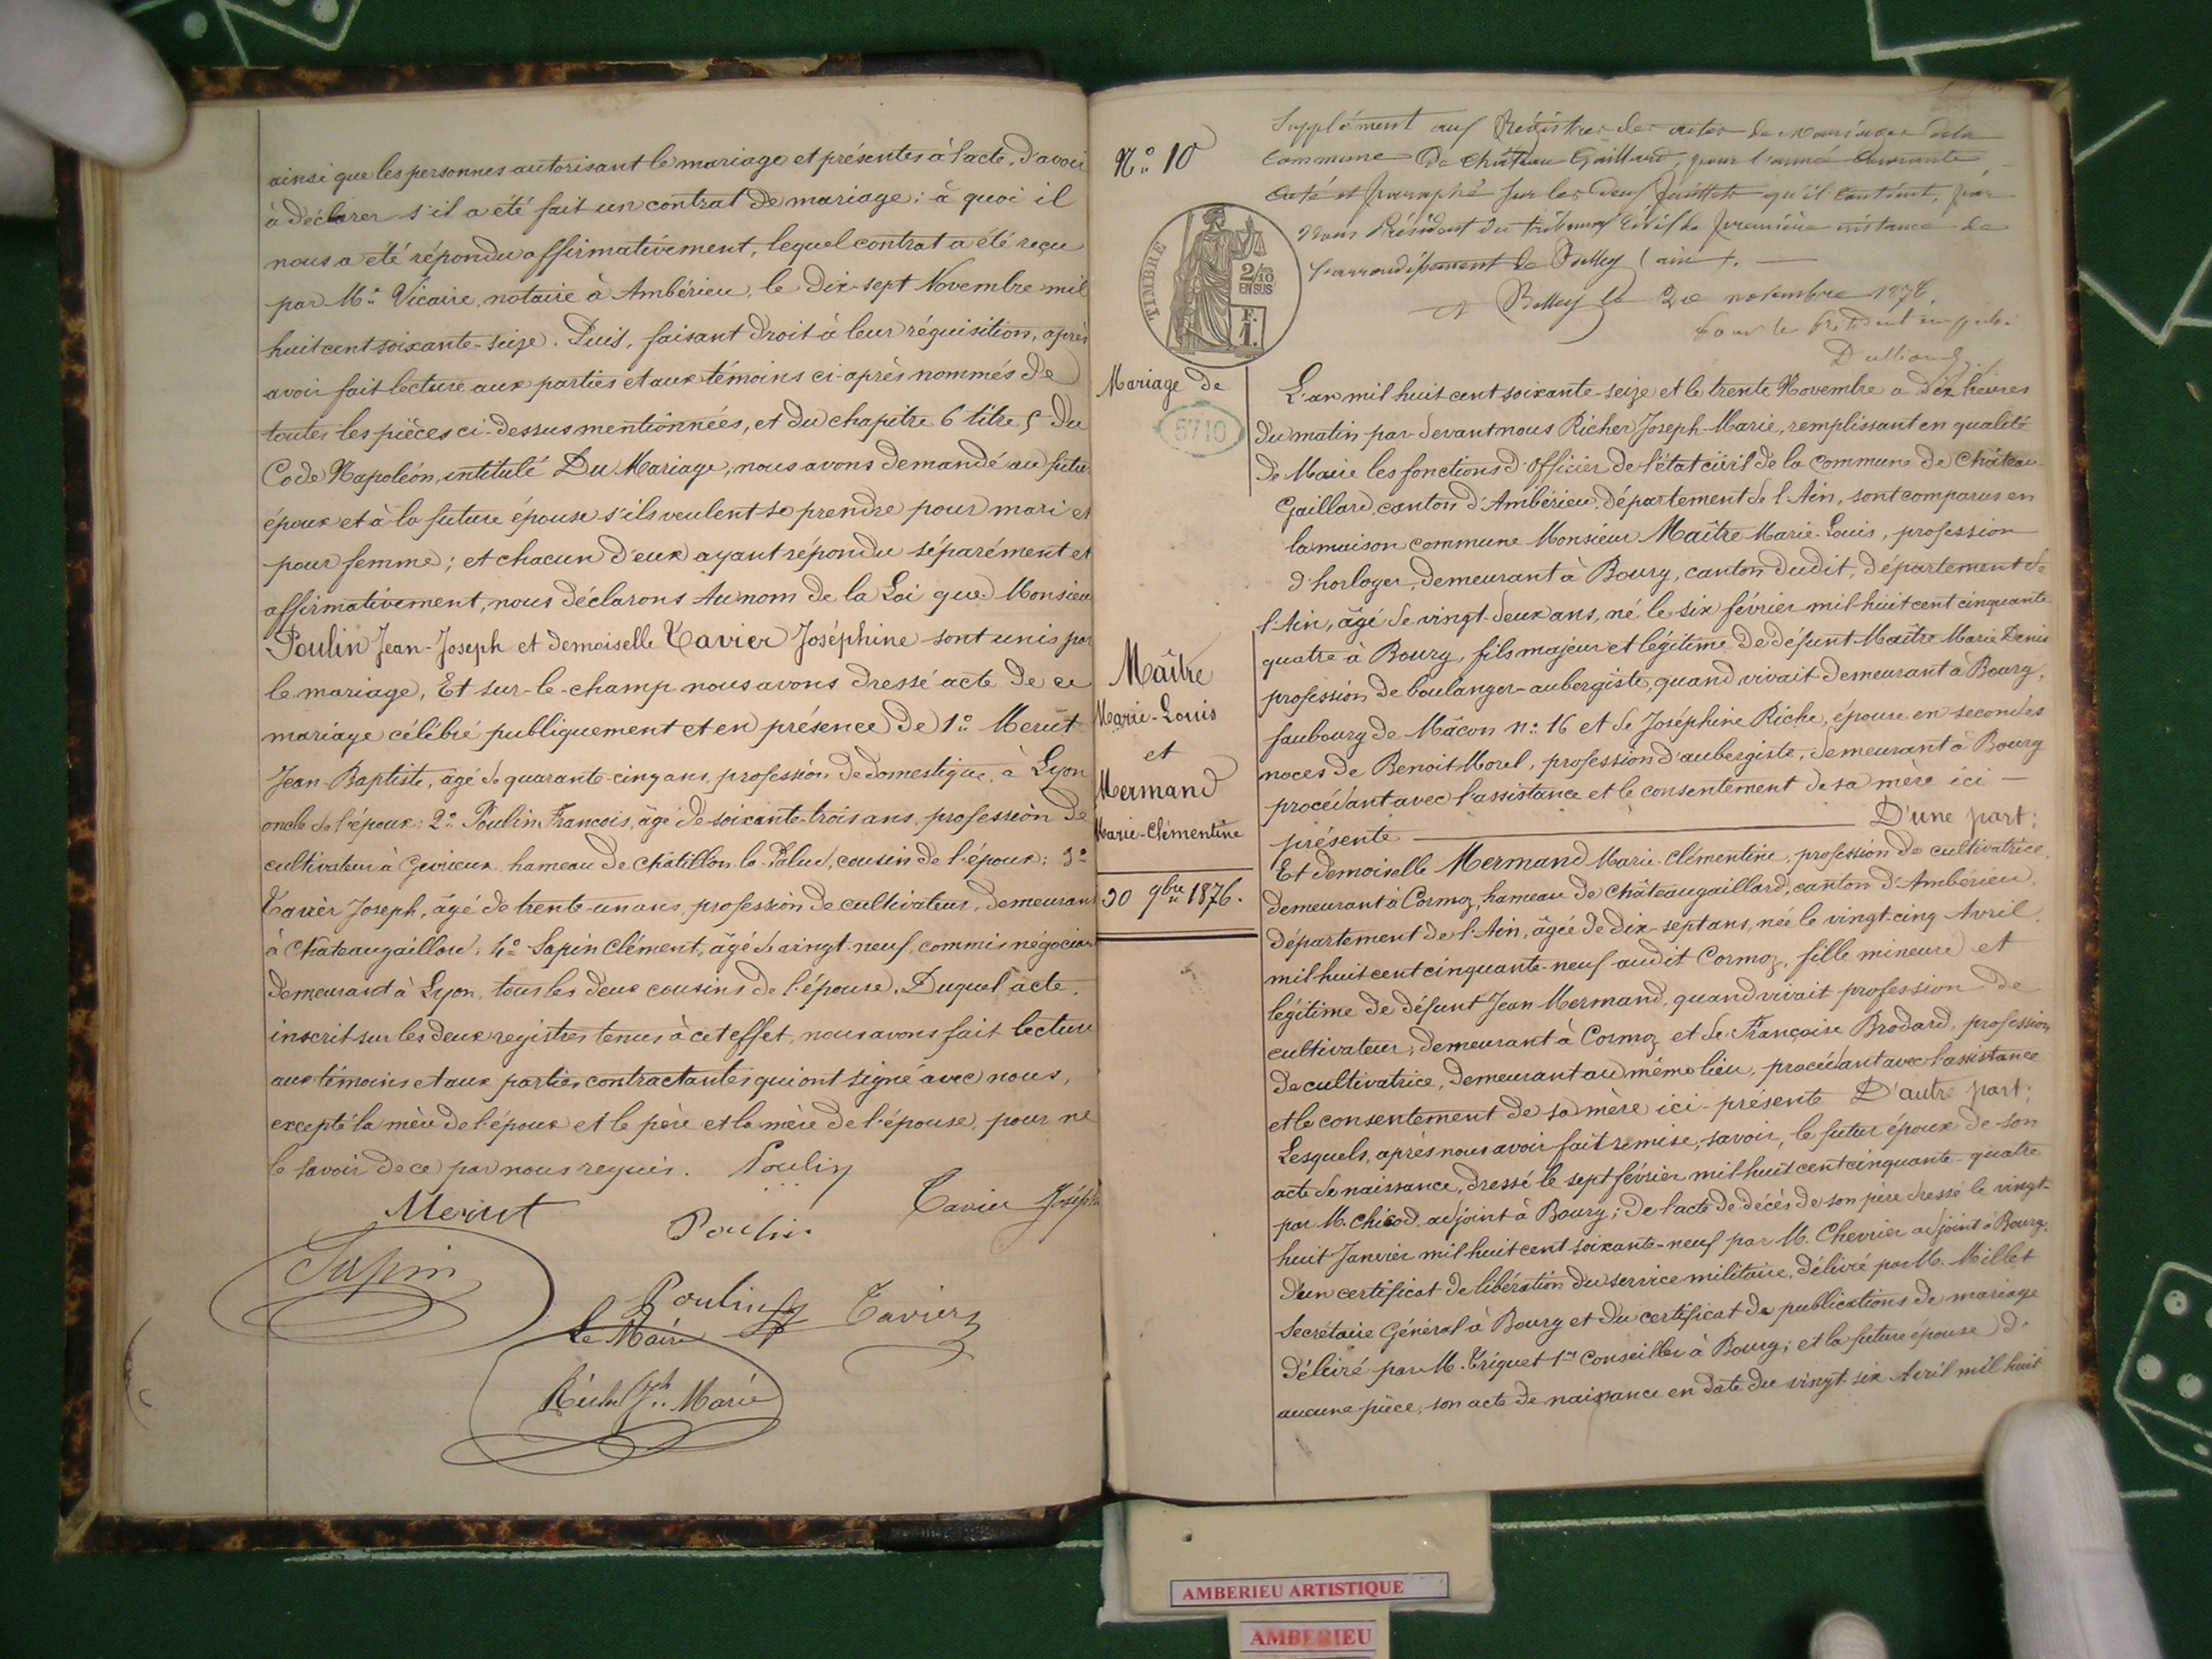 ainsi que les personnes autorisant le mariage et présentes à l'acte, d'avoir
à déclarer s'il a été fait un contrat de mariage ; à quoi il
nous a été répondu affirmativement, lequel contrat a été reçu
par Me Vicaire, notaire à Ambérieu, le dix-sept Novembre mil
huit cent soixante-seize. Puis, faisant droit à leur réquisition, après
avoir fait lecture aux parties et aux témoins ci-après nommés de
toutes les pièces ci-dessus mentionnées, et du chapitre 6 titre 5 du
Code Napoléon, intitulé Du Mariage, nous avons demandé au futur
époux et à la future épouse s'ils veulent se prendre pour mari et
pour femme ; et chacun d'eux ayant répondu séparément et
affirmativement, nous déclarons Au nom de la Loi que Monsieur
Poulin Jean-Joseph et demoiselle Tavier Joséphine sont unis par
le mariage, Et sur-le-champ nous avons dressé acte de ce
mariage célébré publiquement et en présence de 1° Merut
Jean-Baptiste, âgé de quarante-cinq ans, profession de domestique, à Lyon
oncle de l'époux ; 2° Poulin François, âgé de soixante-trois ans, profession de
cultivateur à Gevrieux hameau de Châtillon-la-Palud, cousin de l'époux ; 3°
Tavier Joseph, âgé de trente-un ans, profession de cultivateur, demeurant
à Châteaugaillard ; 4° Sapin Clément, âgé de vingt-neuf, commis négociant
demeurant à Lyon, tous les deux cousins de l'épouse. Duquel acte,
inscrit sur les deux registres tenus à cet effet, nous avons fait lecture
aux témoins et aux parties contractantes qui ont signé avec nous,
excepté la mère de l'époux et le père et la mère de l'épouse, pour ne
le savoir de ce par nous requis. Poulin
Merut Poulin Tavier Joséph
Sapin
Poulin Tavier
Le Maire
Richer Jh Marie
N° 10
Supplément aux Registres des actes de mariages de la
Commune de Château Gaillard, pour l'année courante
Coté et paraphé sur les deux feuillets qu'il contient, par
nous Président du tribunal civil de première instance de
l'arrondissement de Belley (ain).
A Belley le 20 novembre 1876.
Pour le Président
TIMBRE
2/10
EN SUS
F.
1.
Mariage de
5710
Maître
Marie-Louis
et
Mermand
Marie-Clémentine
30 9bre 1876.
L'an mil huit cent soixante-seize et le trente Novembre a dix heures
du matin par-devant nous Richer Joseph-Marie, remplissant en qualité
de Maire les fonctions d'Officier de l'état civil de la Commune de Château
Gaillard, canton d'Ambérieu, département de l'Ain, sont comparus en
la maison commune Monsieur Maître Marie-Louis, profession
d'horloger, demeurant à Bourg, canton dudit, département de
l'Ain, âgé de vingt-deux ans, né le six février mil huit cent cinquante
quatre à Bourg, fils majeur et légitime de défunt Maître Marie Denis
profession de boulanger-aubergiste, quand vivait demeurant à Bourg,
faubourg de Mâcon n° 16 et de Joséphine Riche, épouse en secondes
noces de Benoit Morel, profession d'aubergiste, demeurant à Bourg
procédant avec l'assistance et le consentement de sa mère ici
présente D'une part ;
Et demoiselle Mermand Marie-Clémentine, profession de cultivatrice,
demeurant à Cormoz, hameau de Châteaugaillard, canton d'Ambérieu,
département de l'Ain, âgée de dix-sept ans, née le vingt-cinq Avril
mil huit cent cinquante-neuf audit Cormoz, fille mineure et
légitime de défunt Jean Mermand, quand vivait profession de
cultivateur, demeurant à Cormoz et de Françoise Brodard, profession
de cultivatrice, demeurant au même lieu, procédant avec l'assistance
et le consentement de sa mère ici-présente D'autre part ;
Lesquels, après nous avoir fait remise, savoir, le futur époux de son
acte de naissance, dressé le sept février mil huit cent cinquante-quatre
par M. Chicod, adjoint à Bourg ; De l'acte de décès de son père dressé le vingt-
huit Janvier mil huit cent soixante-neuf par M. Chevrier adjoint à Bourg,
d'un certificat de libération du service militaire, délivré par M. Millet
Secrétaire Général à Bourg et du certificat de publications de mariage
délivré par M. Triquet 1er Conseiller à Bourg ; et la future épouse d'
aucune pièce, son acte de naissance en date du vingt-six Avril mil huit
AMBERIEU ARTISTIQUE
AMBERIEU